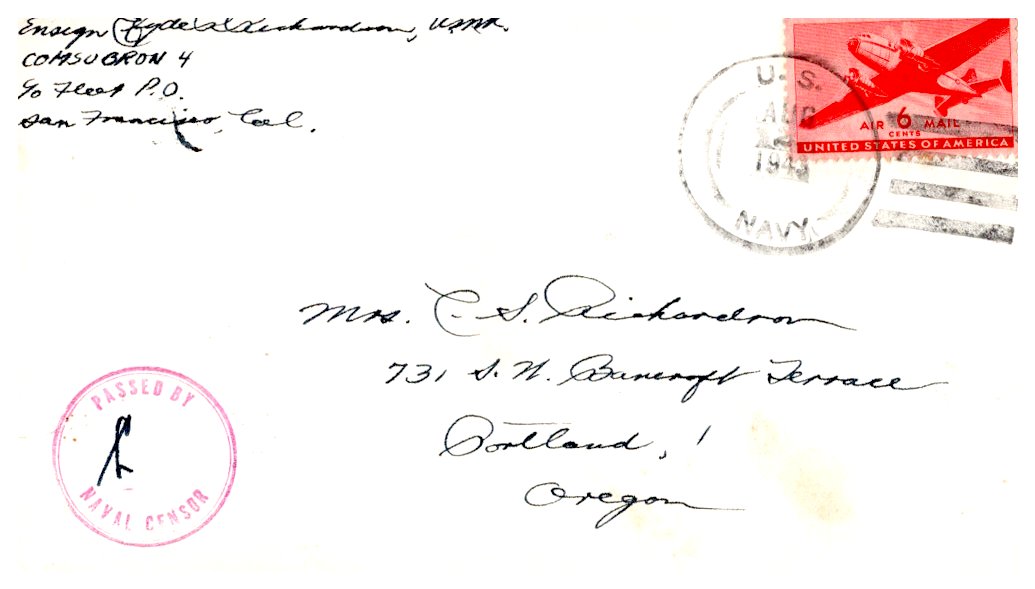 Ensign Hyde S. Richardson, USNR.
COMSUBRON 4
c/o Fleet P.O.
San Francisco, Cal.
U.S.
AUG
194
NAVY
AIR 6 MAIL
CENTS
UNITED STATES OF AMERICA
Mrs. C. S. Richardson
731 S. W. Bancroft Terrace
Portland, 1
Oregon
PASSED BY
NAVAL CENSOR